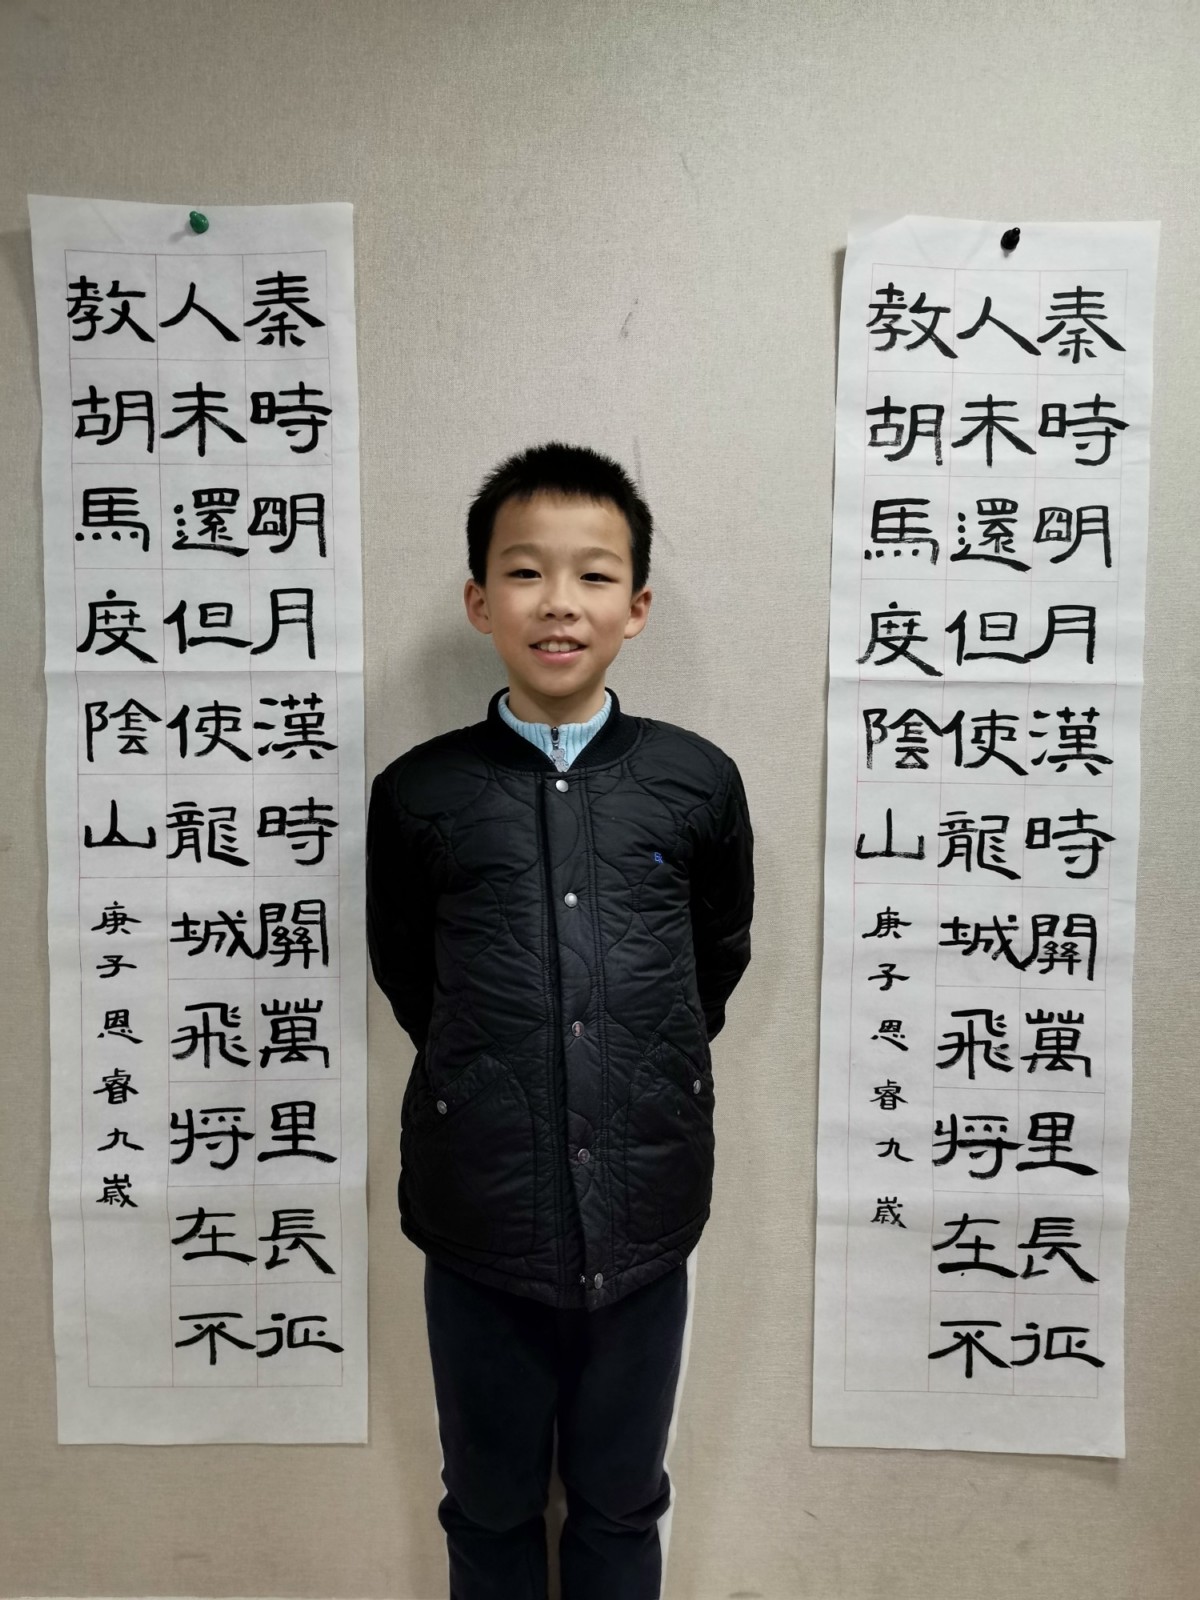 秦時明月漢時關萬里長征
人未還但使龍城飛將在不
教胡馬度陰山
庚子恩睿九歲
秦時明月漢時關萬里長征
人未還但使龍城飛將在不
教胡馬度陰山
庚子恩睿九歲